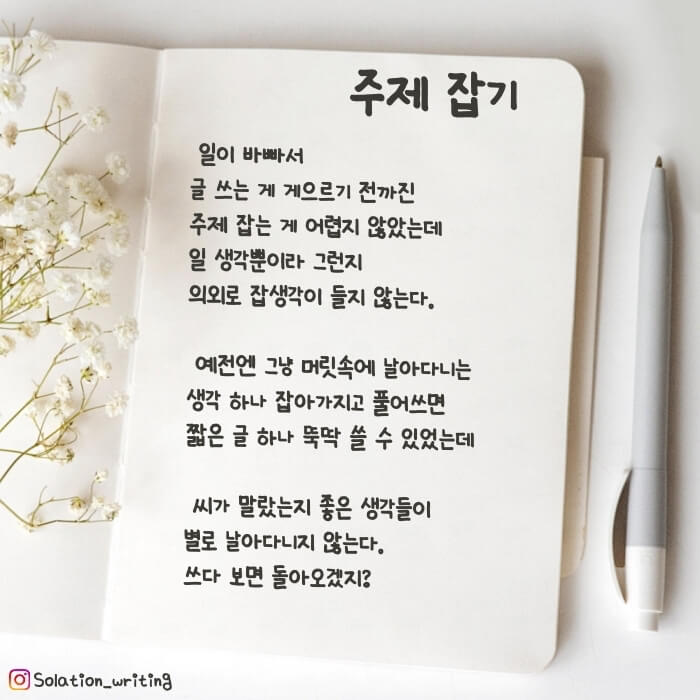 주제 잡기
일이 바빠서
글 쓰는 게 게으르기 전까진
주제 잡는 게 어렵지 않았는데
일 생각뿐이라 그런지
의외로 잡생각이 들지 않는다.
예전엔 그냥 머릿속에 날아다니는
생각 하나 잡아가지고 풀어쓰면
짧은 글 하나 뚝딱 쓸 수 있었는데
씨가 말랐는지 좋은 생각들이
별로 날아다니지 않는다.
쓰다 보면 돌아오겠지?
Solation_writing